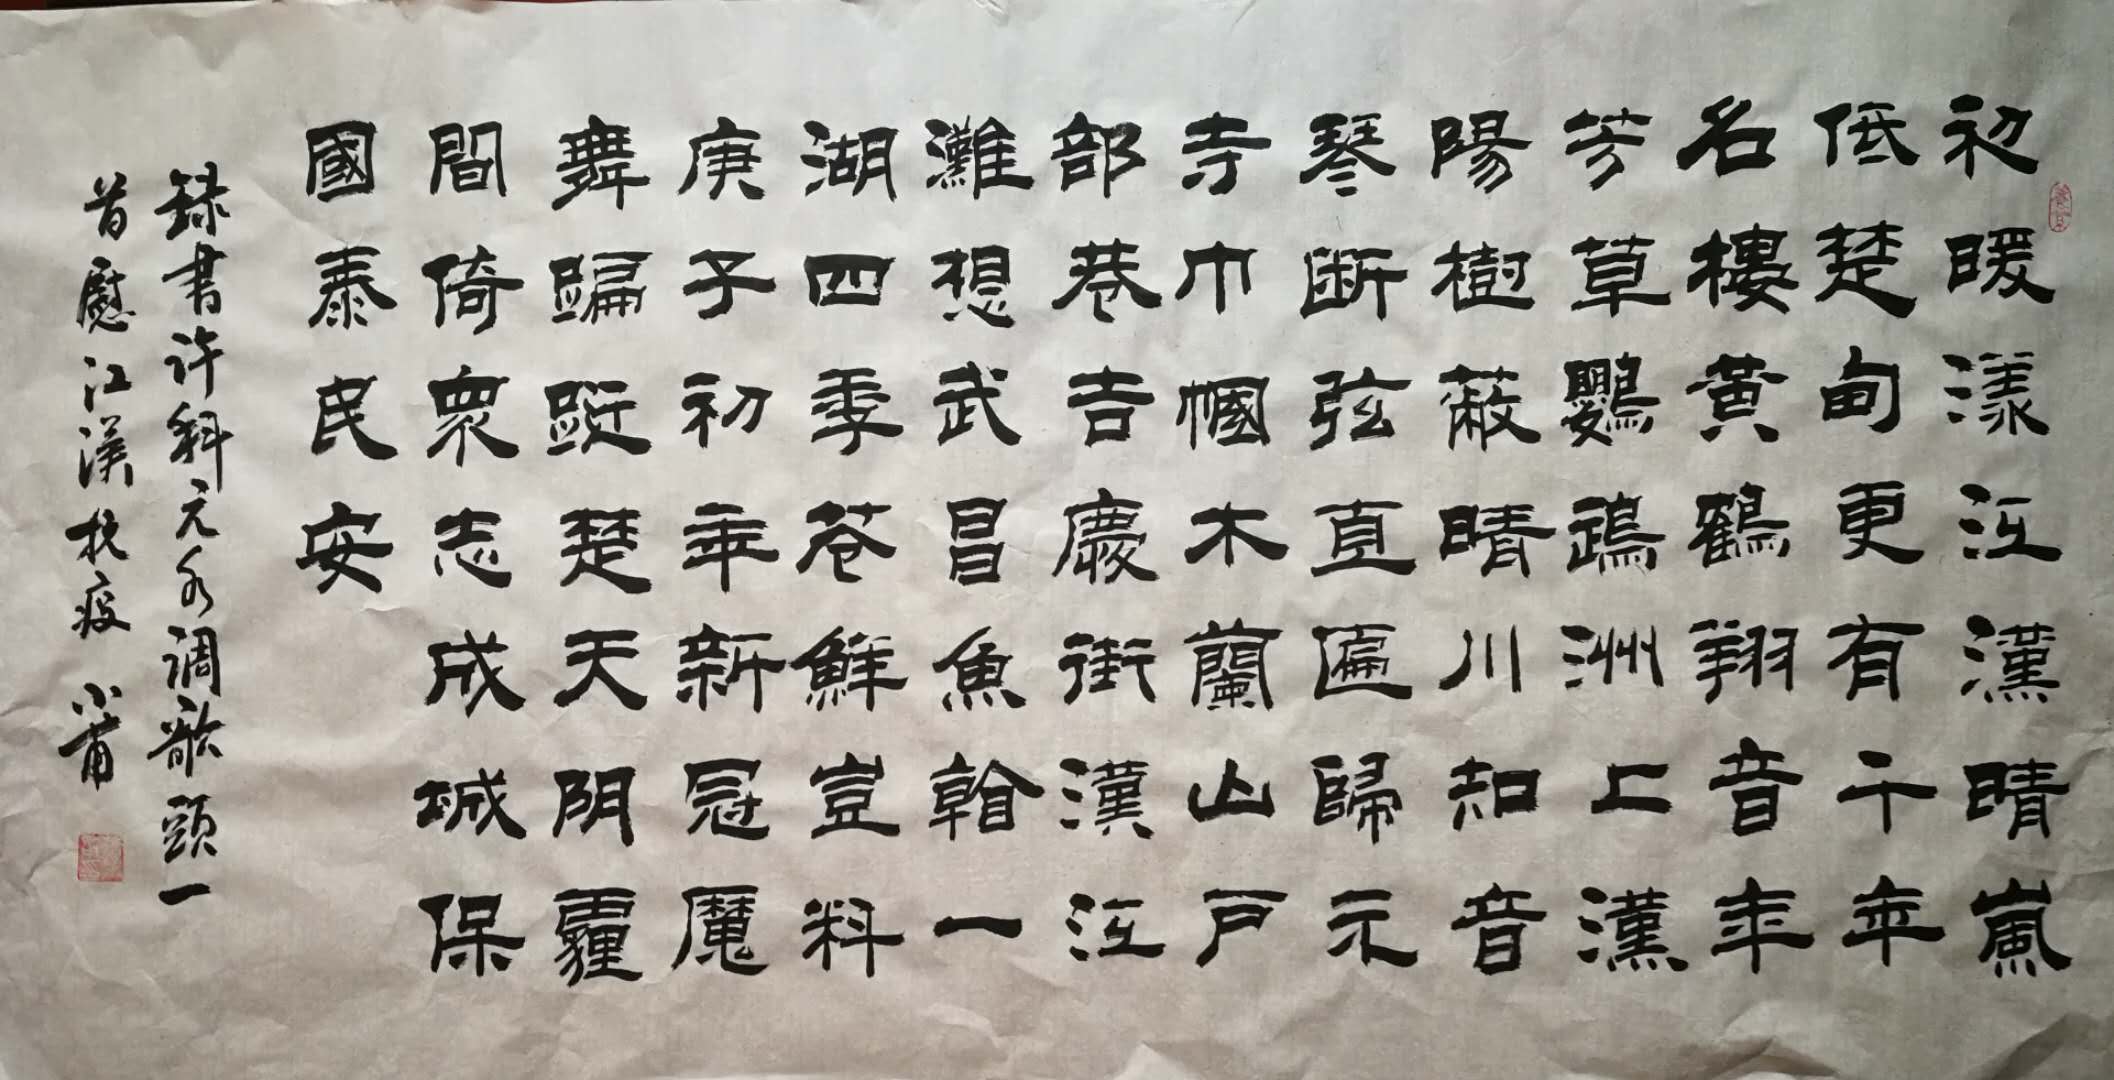 初暖漾江漢晴嵐
低楚甸更有千年
名樓黃鶴翔音年
芳草鸚鵡洲上漢
陽樹蔽晴川知音
琴断弦直匾歸元
寺巾幗木蘭山戶
部巷吉慶街漢江
灘想武昌魚翰一
湖四季苍鮮豈料
庚子初年新冠魔
舞蹁跹楚天阴霾
間倚衆志成城保
國泰民安
録書许科元水调歌頭一
首慰江漢抗疫 小莆